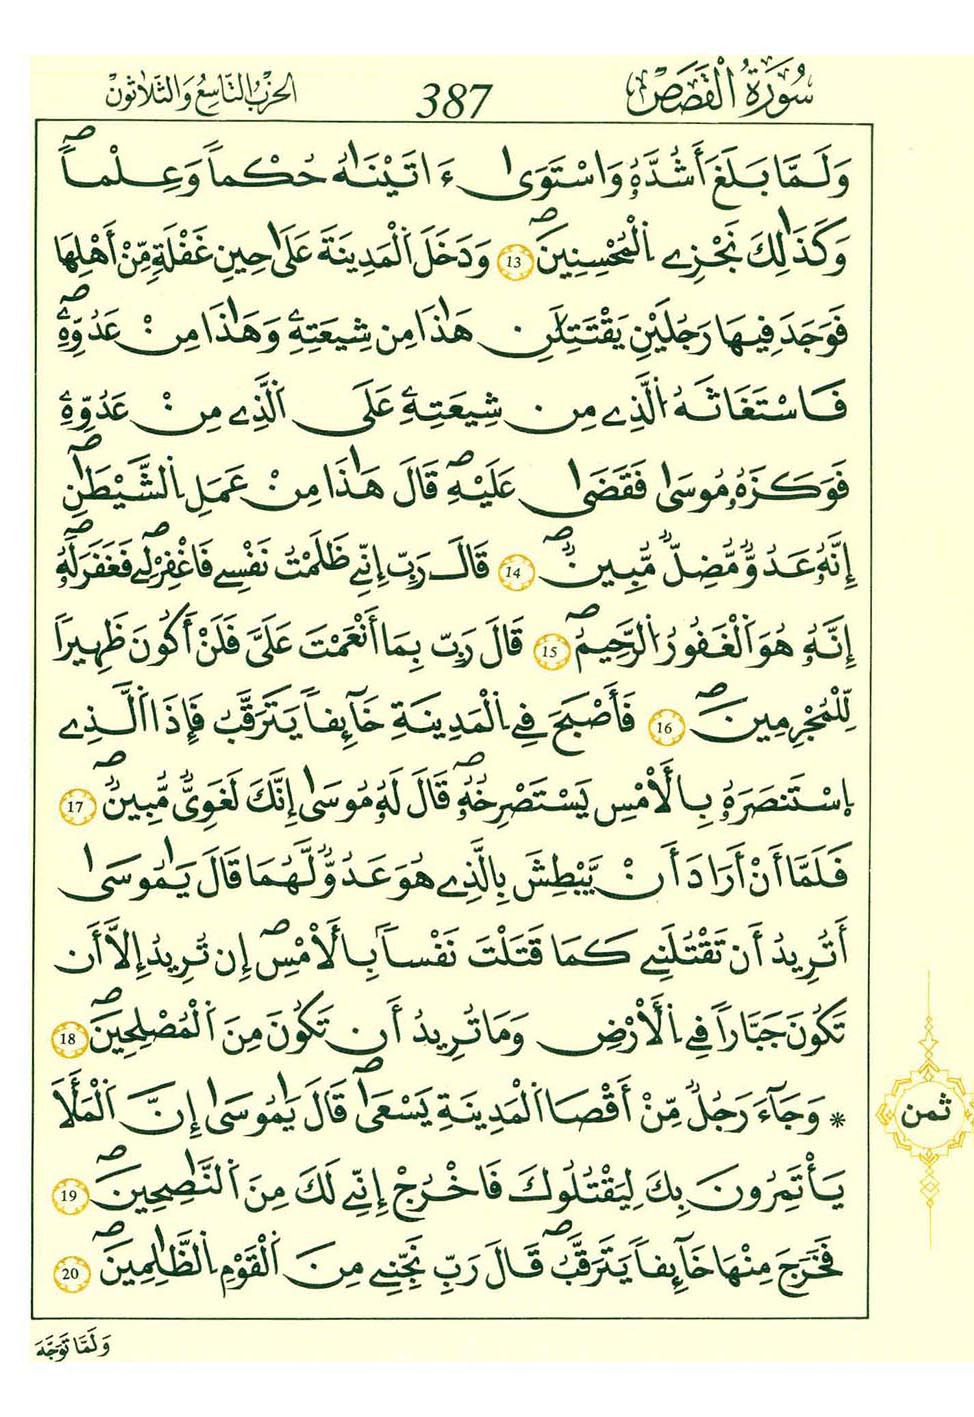 سُورَةُ الْقَصَصِ 387 الحزب التاسع والثلاثون
وَلَمَّا بَلَغَ أَشُدَّهُۥ وَاسْتَوَىٰ ءَاتَيْنَٰهُ حُكْماً وَعِلْماًۖ
وَكَذَٰلِكَ نَجْزِے اِ۬لْمُحْسِنِينَۖ 13 وَدَخَلَ اَ۬لْمَدِينَةَ عَلَىٰ حِينِ غَفْلَةٖ مِّنْ أَهْلِهَا
فَوَجَدَ فِيهَا رَجُلَيْنِ يَقْتَتِلَٰنِ هَٰذَا مِن شِيعَتِهِۦ وَهَٰذَا مِنْ عَدُوِّهِۦۖ
فَاسْتَغَاثَهُ اُ۬لَّذِے مِن شِيعَتِهِۦ عَلَى اَ۬لَّذِے مِنْ عَدُوِّهِۦ
فَوَكَزَهُۥ مُوسَىٰ فَقَضَىٰ عَلَيْهِۖ قَالَ هَٰذَا مِنْ عَمَلِ اِ۬لشَّيْطَٰنِۖ
إِنَّهُۥ عَدُوّٞ مُّضِلّٞ مُّبِينٞۖ 14 قَالَ رَبِّ إِنِّے ظَلَمْتُ نَفْسِے فَاغْفِرْ لِےۖ فَغَفَرَ لَهُۥۖ
إِنَّهُۥ هُوَ اَ۬لْغَفُورُ اُ۬لرَّحِيمُۖ 15 قَالَ رَبِّ بِمَا أَنْعَمْتَ عَلَيَّ فَلَنْ أَكُونَ ظَهِيراٗ
لِّلْمُجْرِمِينَۖ 16 فَأَصْبَحَ فِے اِ۬لْمَدِينَةِ خَآئِفاٗ يَتَرَقَّبُ فَإِذَا اَ۬لَّذِے
اِ۪سْتَنصَرَهُۥ بِالْأَمْسِ يَسْتَصْرِخُهُۥۖ قَالَ لَهُۥ مُوسَىٰ إِنَّكَ لَغَوِيّٞ مُّبِينٞۖ 17
فَلَمَّا أَنْ أَرَادَ أَنْ يَّبْطِشَ بِالَّذِے هُوَ عَدُوّٞ لَّهُمَا قَالَ يَٰمُوسَىٰ
أَتُرِيدُ أَن تَقْتُلَنِے كَمَا قَتَلْتَ نَفْساَۢ بِالْأَمْسِۖ إِن تُرِيدُ إِلَّا أَن
تَكُونَ جَبَّاراٗ فِے اِ۬لْأَرْضِ وَمَا تُرِيدُ أَن تَكُونَ مِنَ اَ۬لْمُصْلِحِينَۖ 18
* وَجَآءَ رَجُلٞ مِّنْ أَقْصَا اَ۬لْمَدِينَةِ يَسْعَىٰۖ قَالَ يَٰمُوسَىٰ إِنَّ اَ۬لْمَلَأَ
يَأْتَمِرُونَ بِكَ لِيَقْتُلُوكَ فَاخْرُجْ إِنِّے لَكَ مِنَ اَ۬لنَّٰصِحِينَۖ 19
فَخَرَجَ مِنْهَا خَآئِفاٗ يَتَرَقَّبُۖ قَالَ رَبِّ نَجِّنِے مِنَ اَ۬لْقَوْمِ اِ۬لظَّٰلِمِينَۖ 20
ثمن
وَلَمَّا تَوَجَّهَ